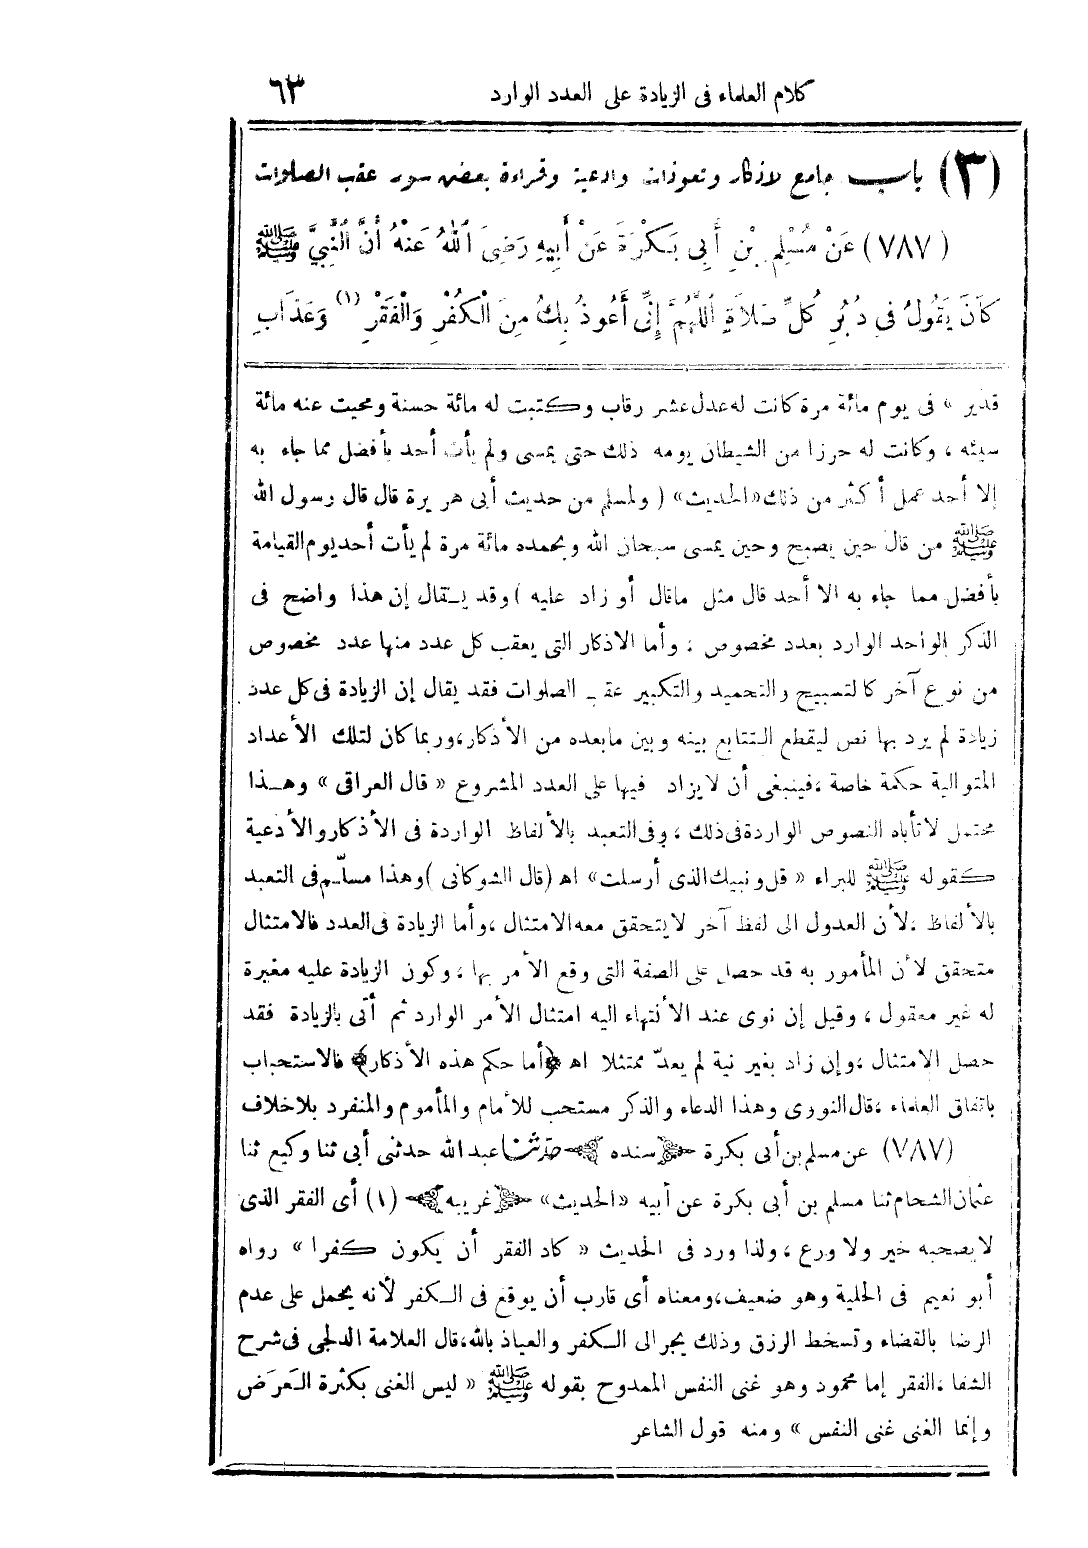 كلام العلماء فى الزيادة على العدد الوارد ٦٣
(٣) باب جامع لاذكار وتعوذات وادعية وقراءة بعض سور عقب الصلوات
(٧٨٧) عَنْ مُسْلِمِ بْنِ أَبِى بَكْرَةَ عَنْ أَبِيهِ رَضِىَ اللهُ عَنْهُ أَنَّ النَّبِيَّ ﷺ
كَانَ يَقُولُ فِى دُبُرِ كُلِّ صَلَاةٍ اَللَّهُمَّ إِنِّى أَعُوذُ بِكَ مِنَ الْكُفْرِ وَالْفَقْرِ (١) وَعَذَابِ
قدير » فى يوم مائة مرة كانت له عدل عشر رقاب وكتبت له مائة حسنة ومحيت عنه مائة
سيئه ، وكانت له حرزا من الشيطان يومه ذلك حتى يمسى ولم يأت أحد بأفضل مما جاء به
إلا أحد عمل أكثر من ذلك «الحديث» ( ولمسلم من حديث أبى هريرة قال قال رسول الله
ﷺ من قال حين يصبح وحين يمسى سبحان الله وبحمده مائة مرة لم يأت أحد يوم القيامة
بأفضل مما جاء به الا أحد قال مثل ماقال أو زاد عليه ) وقد يقال إن هذا واضح فى
الذكر الواحد الوارد بعدد مخصوص ، وأما الاذكار التى يعقب كل عدد منها عدد مخصوص
من نوع آخر كالتسبيح والتحميد والتكبير عقب الصلوات فقد يقال إن الزيادة فى كل عدد
زيادة لم يرد بها نص ليقطع التتابع بينه وبين مابعده من الأذكار،وربما كان لتلك الأعداد
المتوالية حكمة خاصة ،فينبغى أن لايزاد فيها على العدد المشروع « قال العراقى » وهذا
محتمل لاتأباه النصوص الواردة فى ذلك ، وفى التعبد بالألفاظ الواردة فى الأذكار والأدعية
كقوله ﷺ للبراء « قل ونبيك الذى أرسلت» اھ (قال الشوكانى )وهذا مسلّم فى التعبد
بالألفاظ ،لأن العدول الى لفظ آخر لايتحقق معه الامتثال ،وأما الزيادة فى العدد فالامتثال
متحقق لأن المأمور به قد حصل على الصفة التى وقع الأمر بها ، وكون الزيادة عليه مغيرة
له غير معقول ، وقيل إن نوى عند الأنتهاء اليه امتثال الأمر الوارد ثم أتى بالزيادة فقد
حصل الامتثال ،وإن زاد بغير نية لم يعدّ ممتثلا اھ ﴿أما حكم هذه الأذكار﴾ فالاستحباب
باتفاق العلماء ،قال النووى وهذا الدعاء والذكر مستحب للأمام والمأموم والمنفرد بلاخلاف
(٧٨٧) عن مسلم بن أبى بكرة ﴿سنده﴾ حدثنا عبد الله حدثنى أبى ثنا وكيع ثنا
عثمان الشحام ثنا مسلم بن أبى بكرة عن أبيه «الحديث» ﴿غريبه﴾ (١) أى الفقر الذى
لايصحبه خير ولا ورع ، ولذا ورد فى الحديث « كاد الفقر أن يكون كفرا » رواه
أبو نعيم فى الحلية وهو ضعيف،ومعناه أى قارب أن يوقع فى الكفر لأنه يحمل على عدم
الرضا بالقضاء وتسخط الرزق وذلك يجر الى الكفر والعياذ بالله،قال العلامة الدلجى فى شرح
الشفا ،الفقر إما محمود وهو غنى النفس الممدوح بقوله ﷺ « ليس الغنى بكثرة العَرَض
وإنما الغنى غنى النفس » ومنه قول الشاعر